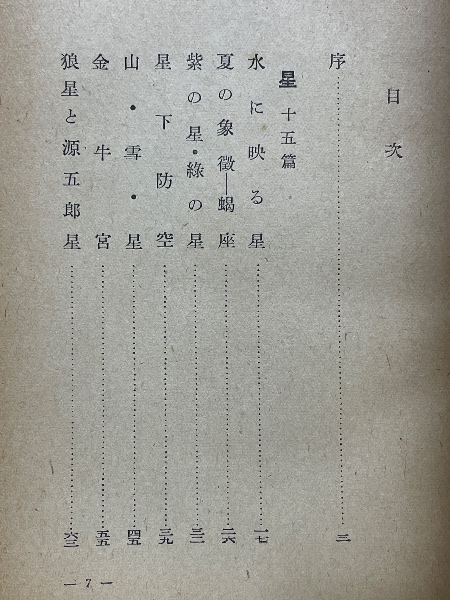 目次
序……………………三
星 十五篇
水に映る星……………………一七
夏の象徴—蝎座……………………二六
紫の星・綠の星……………………三二
星下防空……………………三九
山・雪・星……………………四五
金牛宮……………………五五
狼星と源五郎星……………………六三
— 7 —